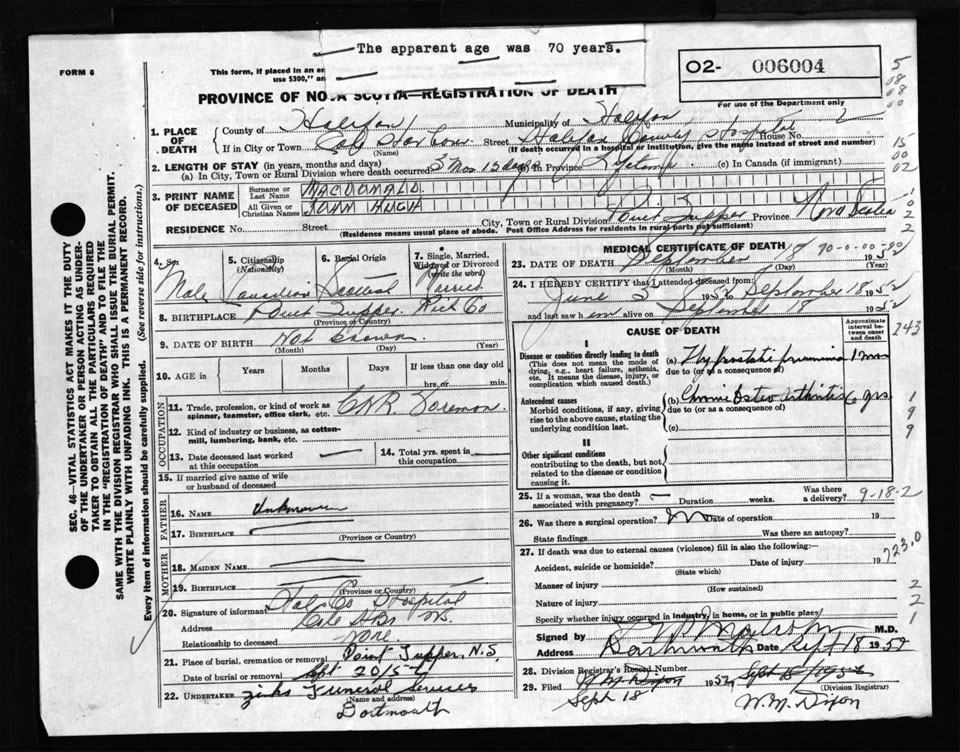 The apparent age was 70 years.
FORM 6
This form, if placed in an en
use $300," an
O2- 006004
For use of the Department only
PROVINCE OF NOVA SCOTIA—REGISTRATION OF DEATH
1. PLACE OF DEATH
County of Halifax Municipality of Halifax 2
If in City or Town Cole Harbour Street Halifax County Hospital House No.
(Name) (If death occurred in a hospital or institution, give the name instead of street and number)
2. LENGTH OF STAY (in years, months and days)
(a) In City, Town or Rural Division where death occurred 3 Mos 15 days (b) In Province Lifetime (c) In Canada (if immigrant)
3. PRINT NAME OF DECEASED
Surname or Last Name MACDONALD
All Given or Christian Names JOHN HUGH
RESIDENCE No. Street City, Town or Rural Division Point Tupper Province Nova Scotia
(Residence means usual place of abode. Post Office Address for residents in rural parts not sufficient)
4. Sex Male
5. Citizenship (Nationality) Canadian
6. Racial Origin Scottish
7. Single, Married, Widowed or Divorced (write the word) Married
8. BIRTHPLACE Point Tupper Rich Co
(Province or Country)
9. DATE OF BIRTH Not known
(Month) (Day) (Year)
10. AGE in Years Months Days If less than one day old
hrs. or min.
OCCUPATION
11. Trade, profession, or kind of work as spinner, teamster, office clerk, etc. CNR. Foreman
12. Kind of industry or business, as cotton-mill, lumbering, bank, etc.
13. Date deceased last worked at this occupation
14. Total yrs. spent in this occupation
15. If married give name of wife or husband of deceased
FATHER
16. NAME Unknown
17. BIRTHPLACE
(Province or Country)
MOTHER
18. MAIDEN NAME
19. BIRTHPLACE
(Province or Country)
20. Signature of informant Hal. Co Hospital
Address Cole Hbr NS.
Relationship to deceased None
21. Place of burial, cremation or removal Point Tupper, N.S.
Date of burial or removal Sept 20/52
22. UNDERTAKER Zinks Funeral Services
(Name and address)
Dartmouth
MEDICAL CERTIFICATE OF DEATH
23. DATE OF DEATH September 18 1952
(Month) (Day) (Year)
24. I HEREBY CERTIFY that I attended deceased from:
June 3 1952 to September 18 1952
and last saw him alive on September 18 1952
CAUSE OF DEATH
Approximate interval between onset and death
I
Disease or condition directly leading to death
(This does not mean the mode of dying, e.g., heart failure, asthenia, etc. It means the disease, injury, or complication which caused death.)
(a) Hypostatic pneumonia
due to (or as a consequence of)
Antecedent causes
Morbid conditions, if any, giving rise to the above cause, stating the underlying condition last.
(b) Chronic Osteo Arthritis 6 yrs.
due to (or as a consequence of)
(c)
II
Other significant conditions
contributing to the death, but not related to the disease or condition causing it.
25. If a woman, was the death associated with pregnancy? Duration weeks. Was there a delivery? 9-18-2
26. Was there a surgical operation? No Date of operation 19
State findings Was there an autopsy?
27. If death was due to external causes (violence) fill in also the following:
Accident, suicide or homicide? Date of injury 19
(State which)
723.0
Manner of injury
(How sustained)
Nature of injury
Specify whether injury occurred in industry, in home, or in public place
Signed by M.D.
Dartmouth Date Sept 18 1952
28. Division Registrar's Record Number
29. Filed W.M. Dixon 1952 Sept 18/1952
(Division Registrar)
Sept 18 W.M. Dixon
243
SEC. 46—VITAL STATISTICS ACT MAKES IT THE DUTY
OF THE UNDERTAKER OR PERSON ACTING AS UNDER-
TAKER TO OBTAIN ALL THE PARTICULARS REQUIRED
IN THE "REGISTRATION OF DEATH" AND TO FILE THE
SAME WITH THE DIVISION REGISTRAR WHO SHALL ISSUE THE BURIAL PERMIT.
WRITE PLAINLY WITH UNFADING INK. THIS IS A PERMANENT RECORD.
Every item of information should be carefully supplied. (See reverse side for instructions.)